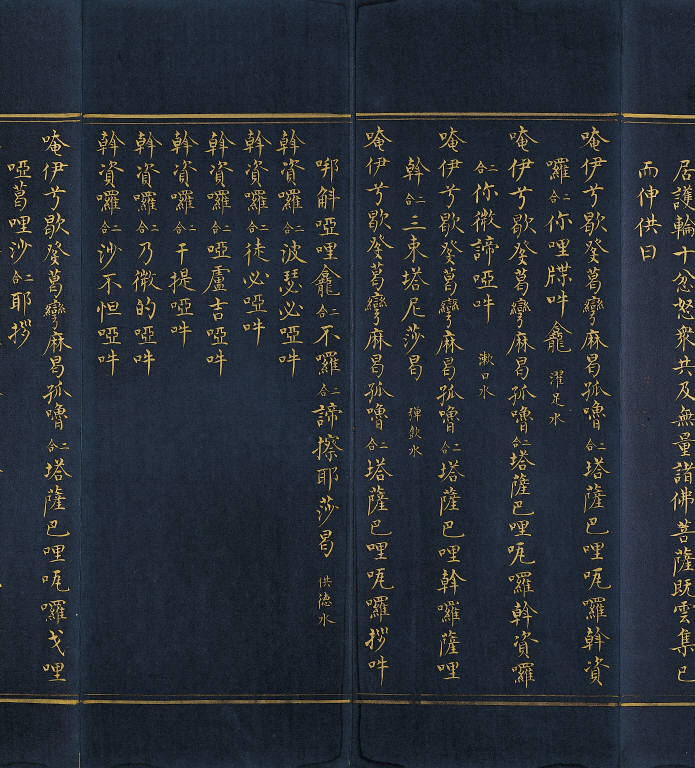 居護輪十忿怒衆共及無量諸佛菩薩既雲集已
而伸供曰
唵伊兮歇癹葛彎麻曷孤嚕二合塔薩巴哩咓囉斡資
囉二合你哩牒吽龕 濯足水
唵伊兮歇癹葛彎麻曷孤嚕二合塔薩巴哩咓囉斡資囉
二合你微諦啞吽 漱口水
唵伊兮歇癹葛彎麻曷孤嚕二合塔薩巴哩斡囉薩哩
斡二合三東塔尼莎曷 彈飲水
唵伊兮歇癹葛彎麻曷孤嚕二合塔薩巴哩咓囉拶吽
啞哩龕二合不囉二合諦擦耶莎曷 供德水
斡資囉二合波瑟必啞吽
斡資囉二合徒必啞吽
斡資囉二合啞盧吉啞吽
斡資囉二合干提啞吽
斡資囉二合乃微的啞吽
斡資囉二合沙不怛啞吽
唵伊兮歇癹葛彎麻曷孤嚕二合塔薩巴哩咓囉戈哩
啞葛哩沙二合耶拶